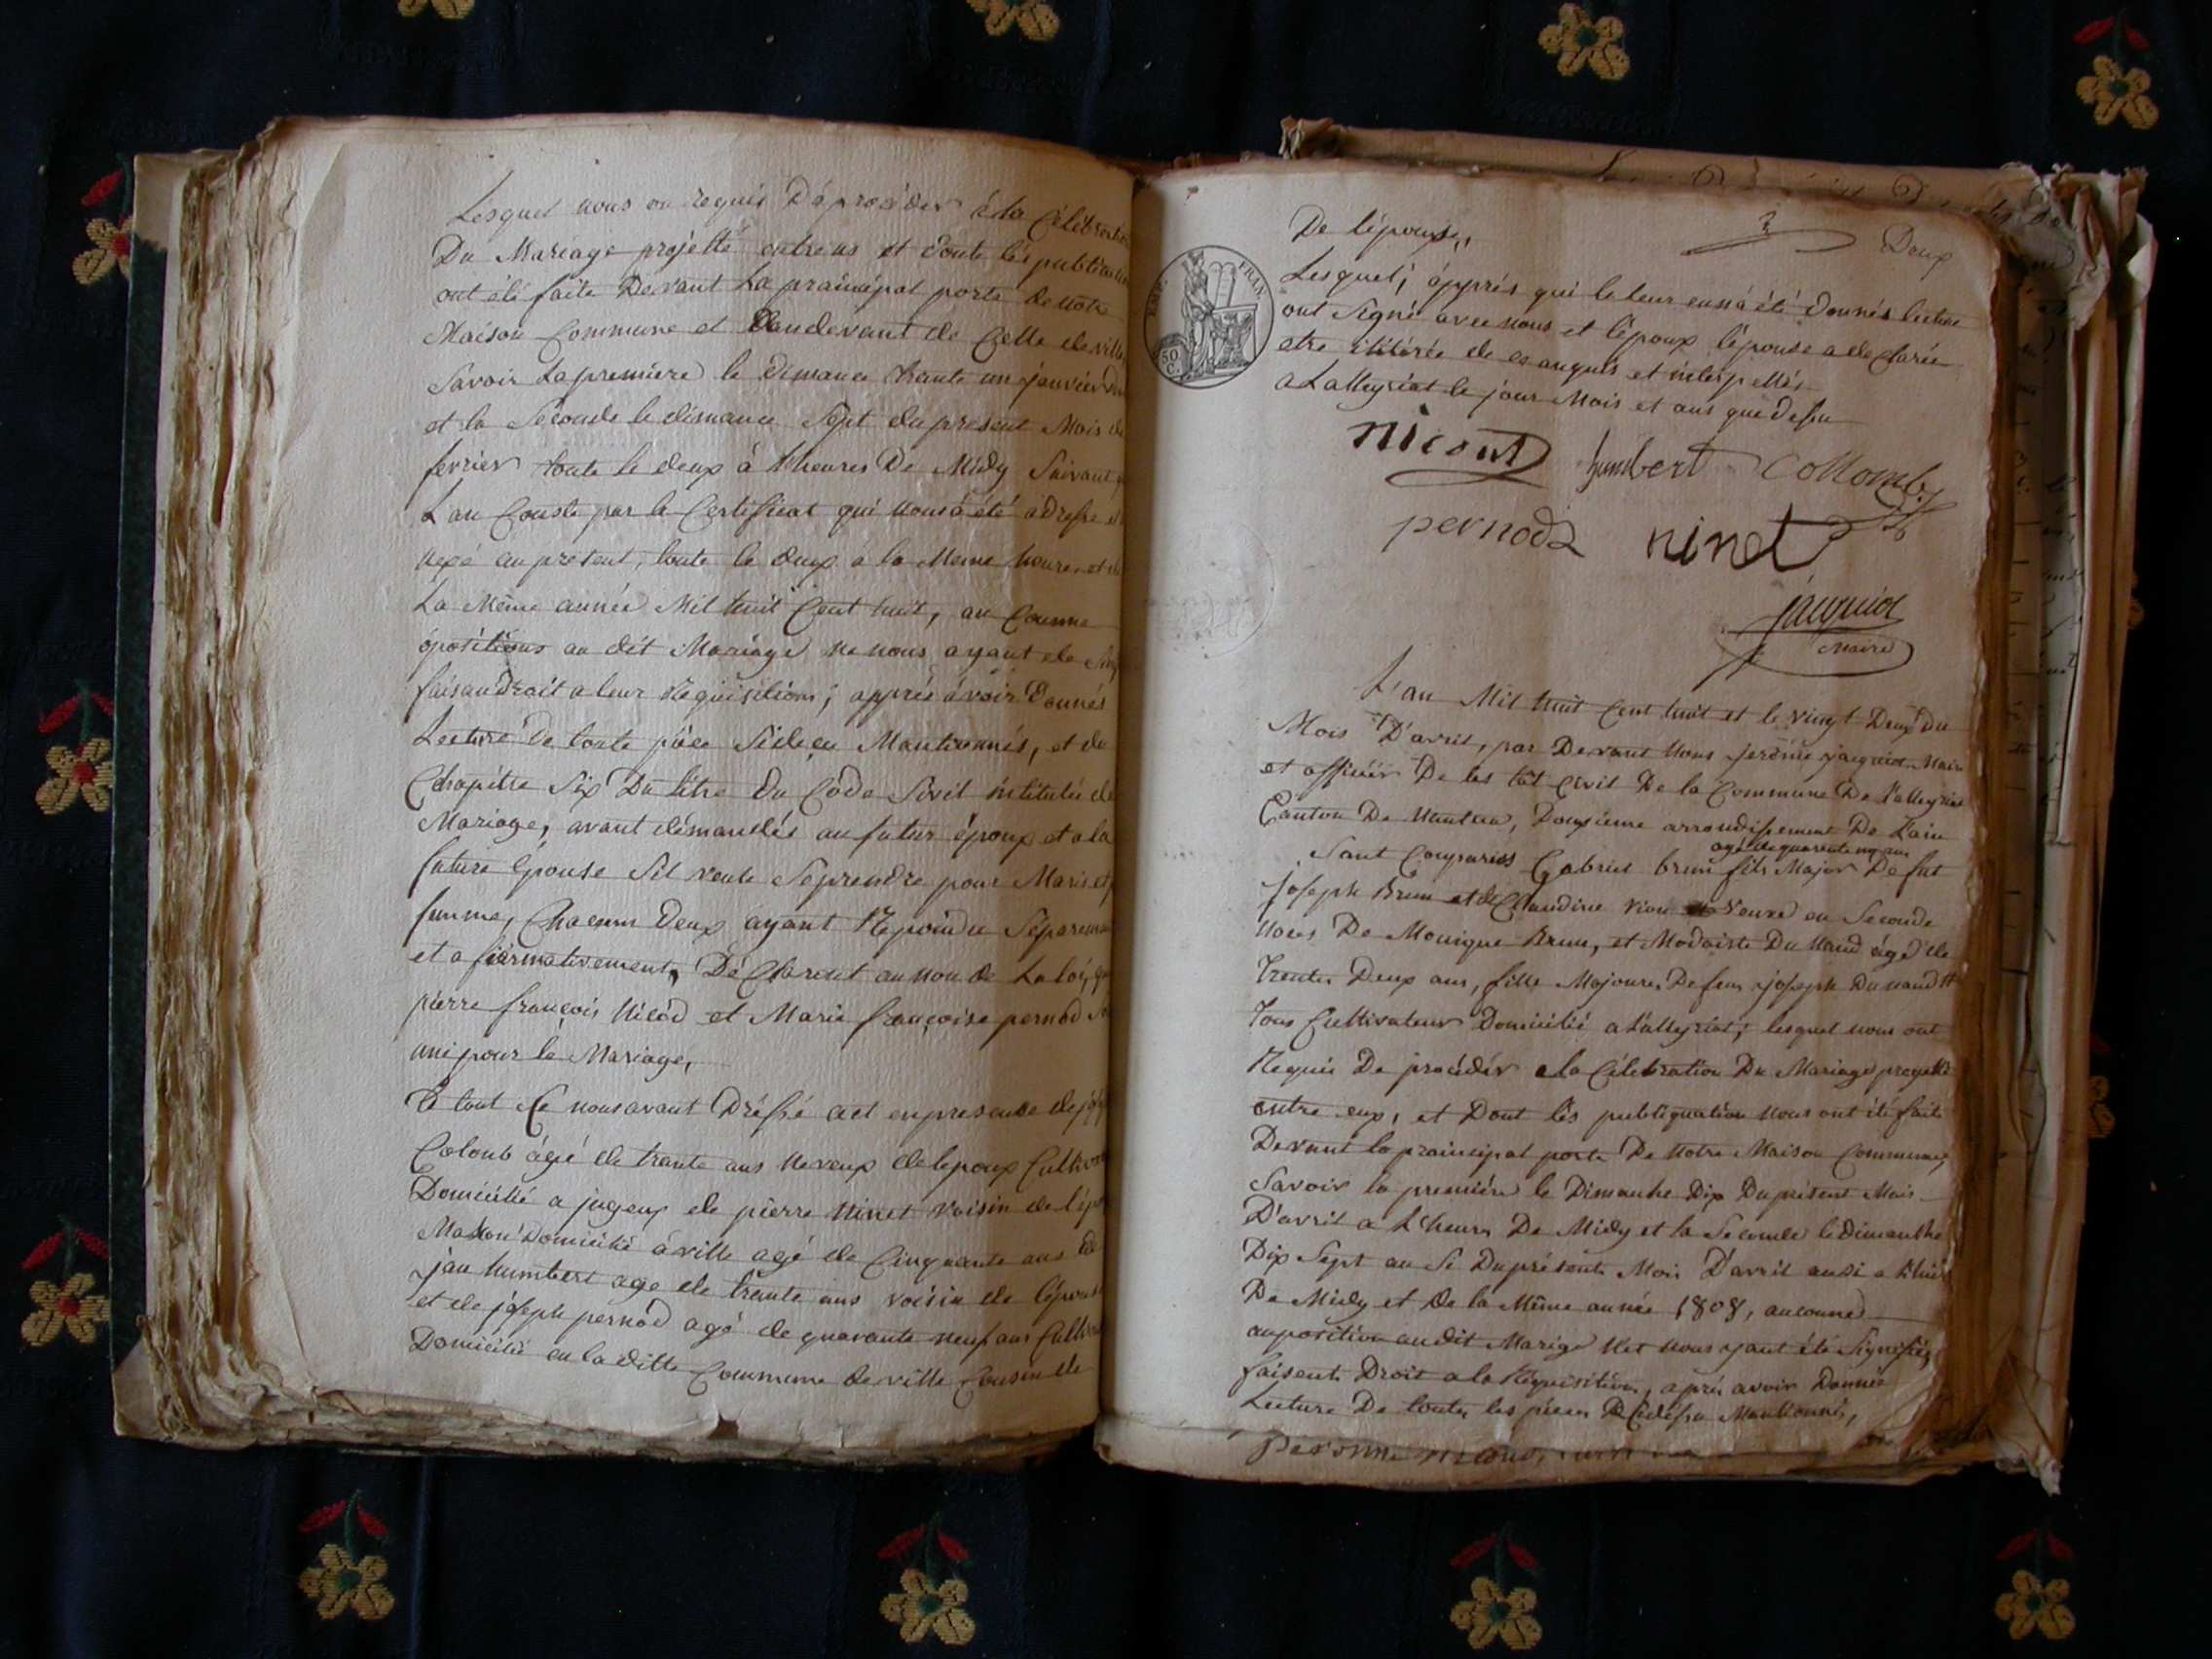 Lesquel nous on requis Déprocéder à la Célébration
Du Mariage projetté entre us et Donte lés publication
ont été faite Devant La prainsipal porte de notre
Maison Commune et Daudevant de Celle de ville
Savoir La première le dimance trante un janvier
et la Seconde le dimance Sept du présent Mois de
fevrier toute le deux à heures De Midy Suivant
L'an Conste par le Certificat qui nous à été adresse et
nexé au présent, toute le deux à la Meme heure et de
La Même année Mil huit Cent huit, au Counne
opositions au dit Mariage ne nous ayant ete
faisan Droit a leur Réquisitions; apprés avoir Donnés
Lecture De toute pièce Mantionnés, et du
Chapitre Six Du titre Du Code Sivil intitulée du
Mariage, avant démandés au futur époux et a la
future épouse Sil veule Seprendre pour Maris et
femme, Chacunn Deux ayant Répondu Séparemen
et afiermativement, Déclarent au non de La loi, que
pierre françois Nicod et Marie françoise pernod
uni pour le Mariage,
Le tout Ce nous avant Dréssé act en presence de
Colomb âgé de trante ans neveux de lepoux Cultiv
Domicilié a jugeux de pièrre Ninet voisin de l'épo
Masson Domicilié à ville agé de Cinquante ans de
jan humbert age de trante ans voisin de l'épouse
et de joseph pernod agé de quarante neuf ans Cultiv
Domicilié en la ditte Commune de ville Cousin de
2 Deux
De l'épouse,,
Lesquel, apprés qui le leur ennà été Donnés lecture
ont Signé avec nous et l'époux l'épouse a declarée
etre ilitérée de ce anquis et interpellés
a Lalleyriat le jour Mois et ans que desu
EMP. FRAN.
50 C.
nicout humbert Collomb
pernod ninet
jacquiot
Maire
L'an Mil huit Cent huit et le vingt Deux du
Mois D'avril, par Devant Nous jerômé jacquiot Maire
et officiér De les tât Civil De la Commune De Lalleyriat
Canton De Nantua, Douxieme arrondissement De L'ain
age de quarente ans
Sont Comparus Gabriel brun fils Major De fut
joseph Brun et de Claudine vion veuve en Seconde
noces De Monique Brun, et Modaiste Du Naud âgé de
Trente Deux ans, fille Majoure De feu joseph Dunaud
Tous Cultivateur Domicilié a Lalleyriat, lesquel nous ont
Requis De procédér a la Célébration Du Mariage proyetté
entre eux, et Dont lés publiquation Nous ont été faite
Devant la prainsipal porte De Notre Maison Commune,
Savoir la première le Dimanhe Dix Du présent Mois
D'avril a L'heure De Midy et la Seconde le dimanthe
Dix Sept au Se Du présente Mois D'avril ausi a
De Midy et de la Même année 1808, aucunne
auposition au dit Marige Net Nous yant été Signifié,
faisent Droit a la Réquisition, aprés avoir Donnée
Lecture De toute les pièces Cidessu Mantionné,